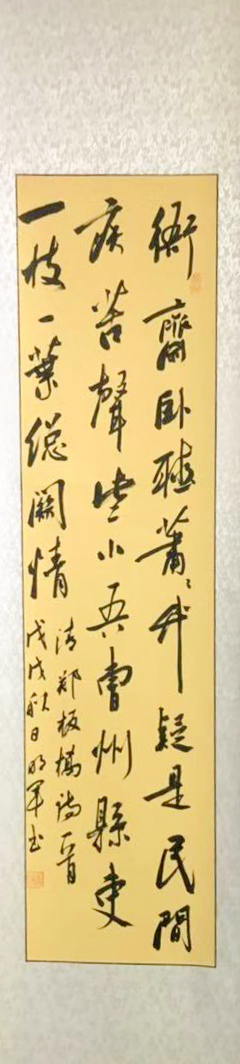 衙齋卧聽蕭〻竹疑是民間
疾苦聲些小吾曹州縣吏
一枝一葉總關情
清鄭板橋詩一首
戊戌秋日明軍书